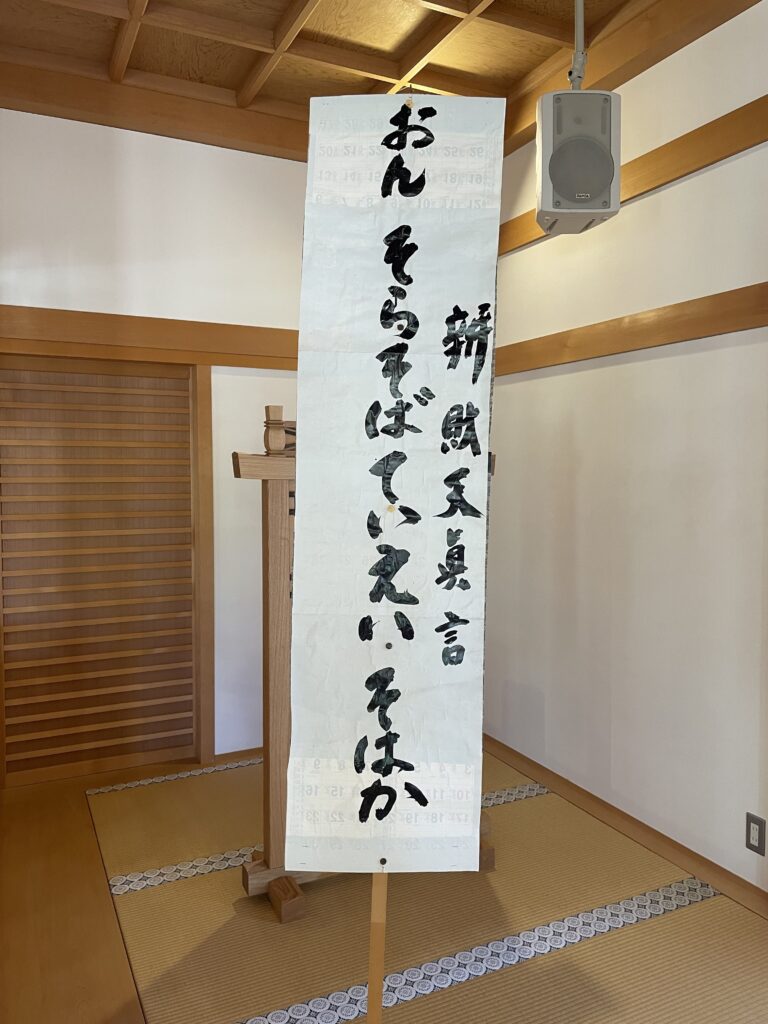 辨財天眞言
おん そらそばていえい そはか